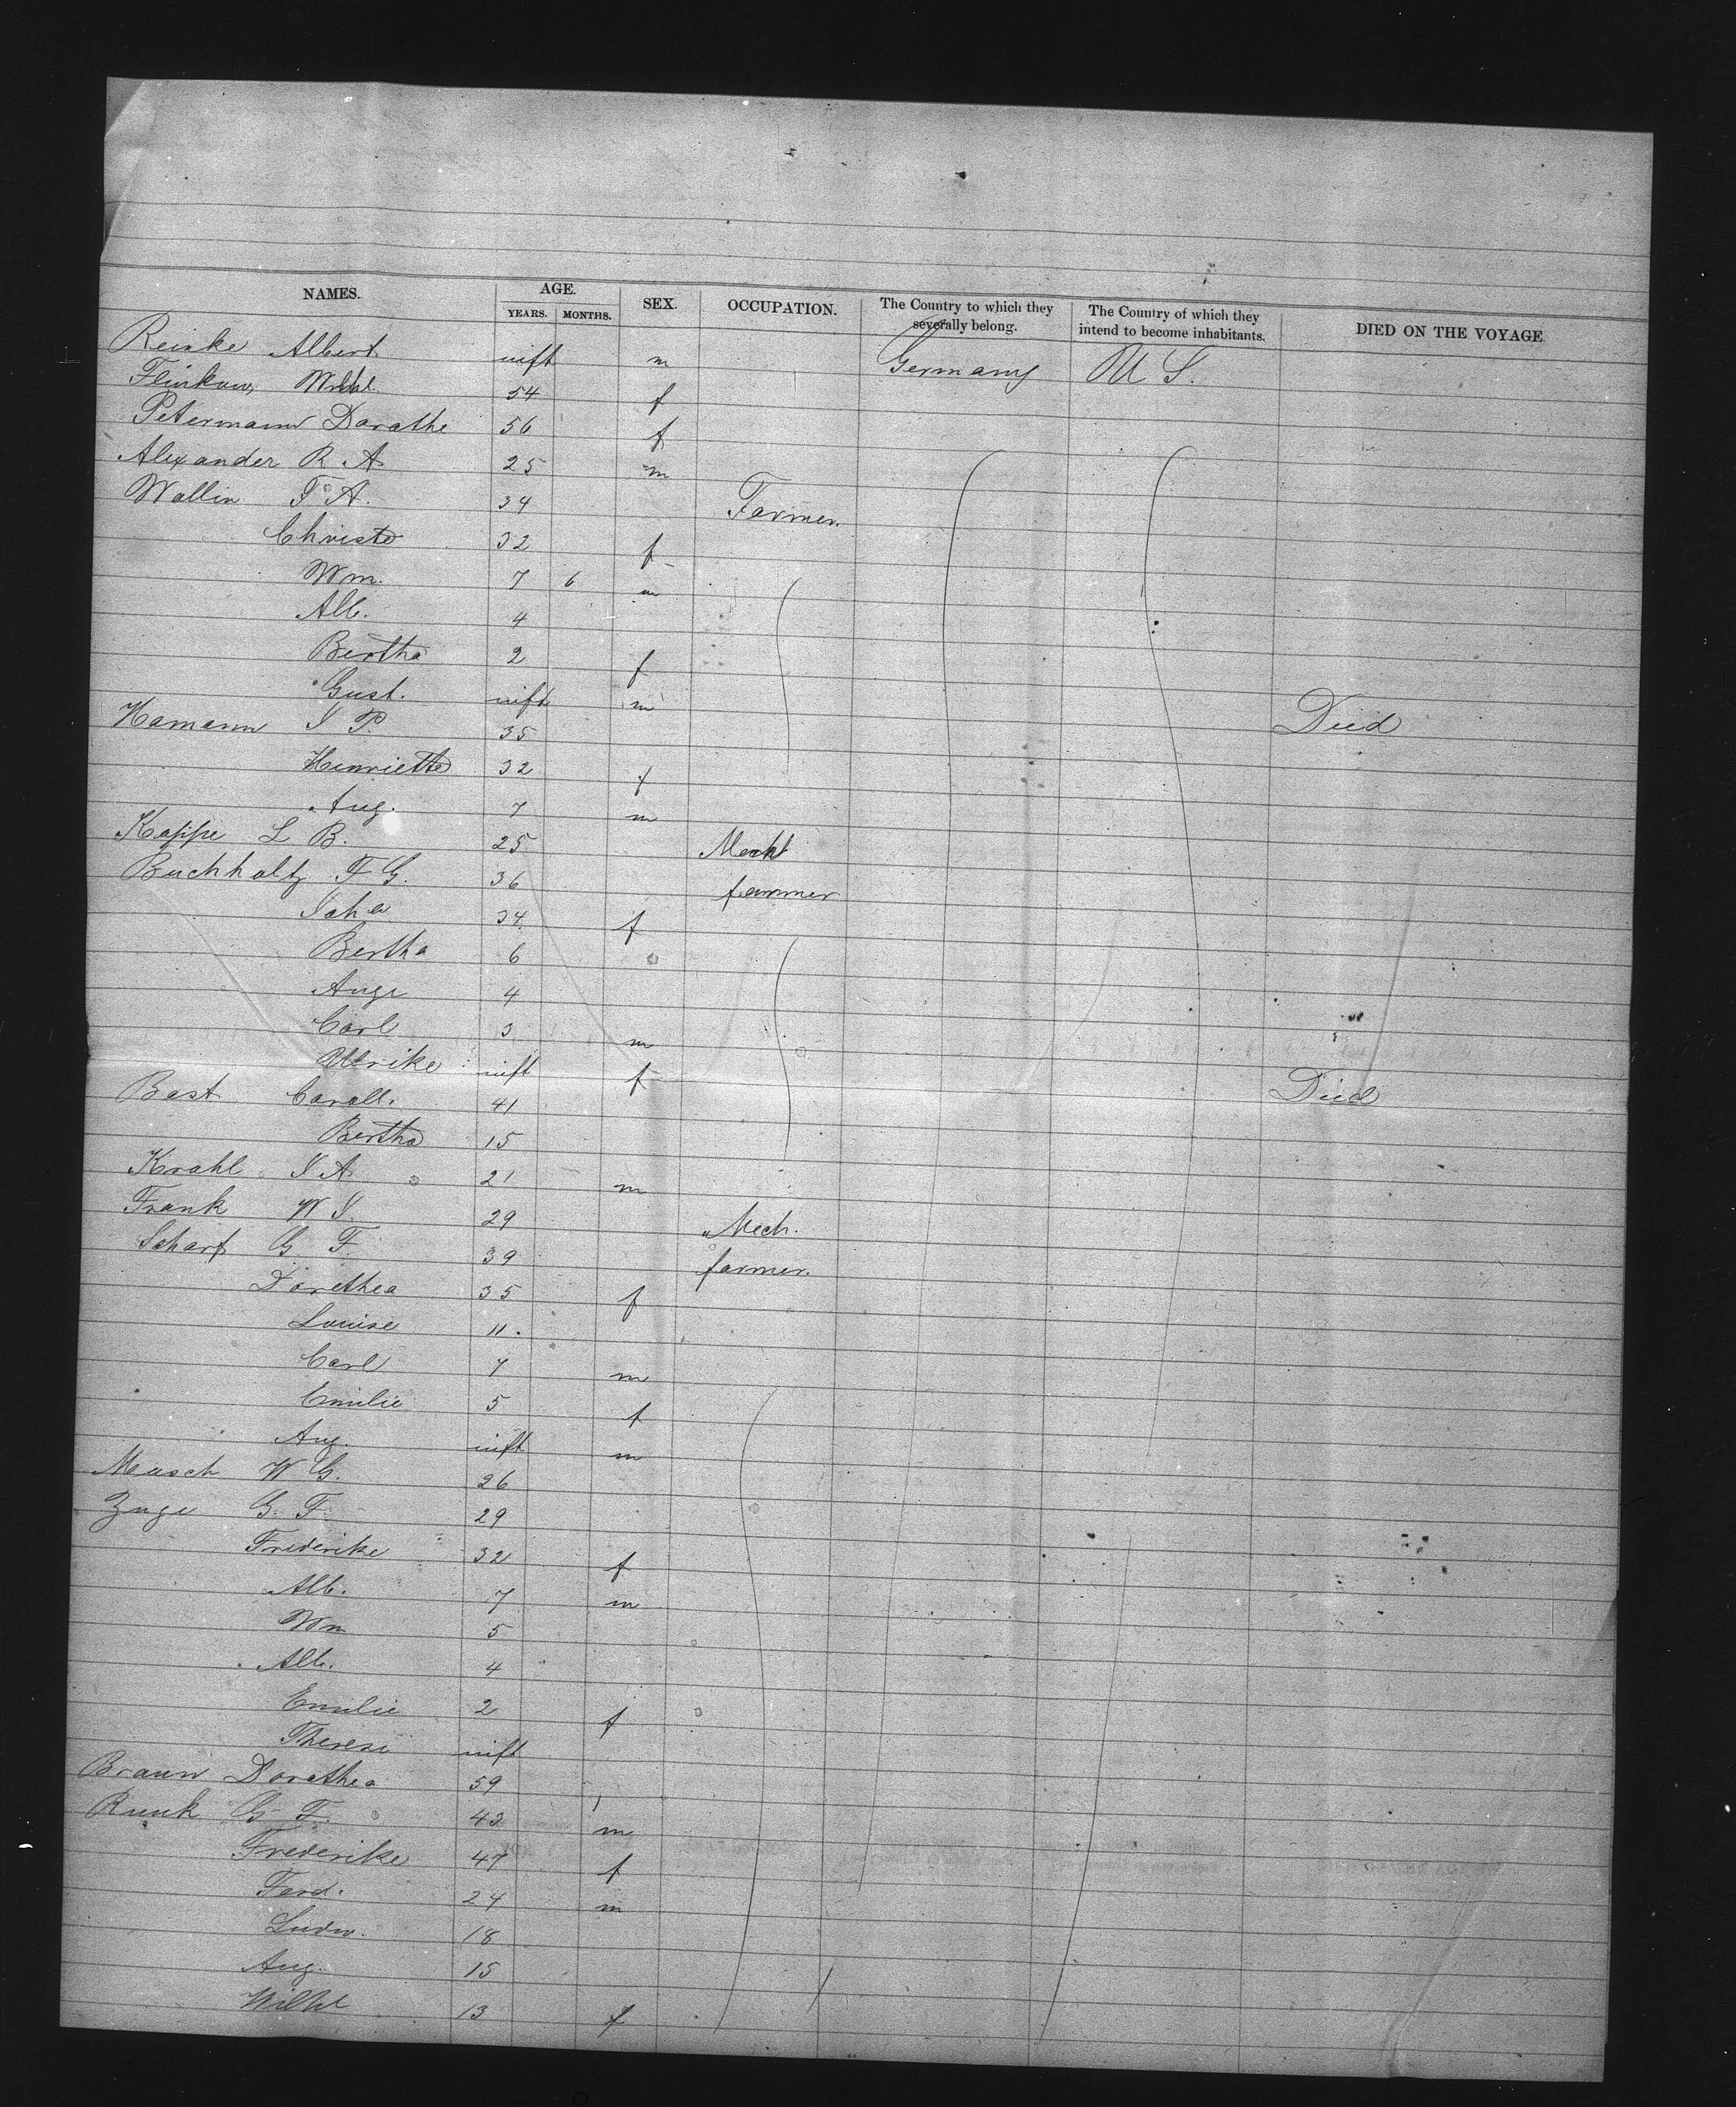 NAMES. AGE. SEX. OCCUPATION. The Country to which they severally belong. The Country of which they intend to become inhabitants. DIED ON THE VOYAGE
YEARS. MONTHS.
Reinke Albert inft m Germany U S.
54 f
Petermann Dorathe 56 f
Alexander R A 25 m
Wallin F A. 34 Farmer.
Christe 32 f
Wm. 7 6 m
Alb. 4
Bertha 2 f
Gust. inft m Died
Hamann J P. 35
Henriette 32 f
Aug. 7 m
Kappe L B. 25 Mech
Buchholtz F G. 36 farmer
Joha 34. f
Bertha 6
Auge 4
Carl 3 m
Ullrike inft f Died
Bast Caroll. 41
Bertha 15
Krahl J A 21 m
Frank W J. 29 Mech.
Scharf G F 39 farmer.
Dorethea 35 f
Louise 11.
Carl 7 m
Emilie 5 f
Aug. inft m
Masch W G. 26
Zuge G. F. 29
Frederike 32 f
Alb. 7 m
Wm 5
Alb. 4
Emilie 2 f
Therese inft
Braun Dorathea 59
Runk G F. 42 m
Frederike 47 f
Ferd. 24 m
Ludw. 18
Aug. 15
Wilhl 13 f